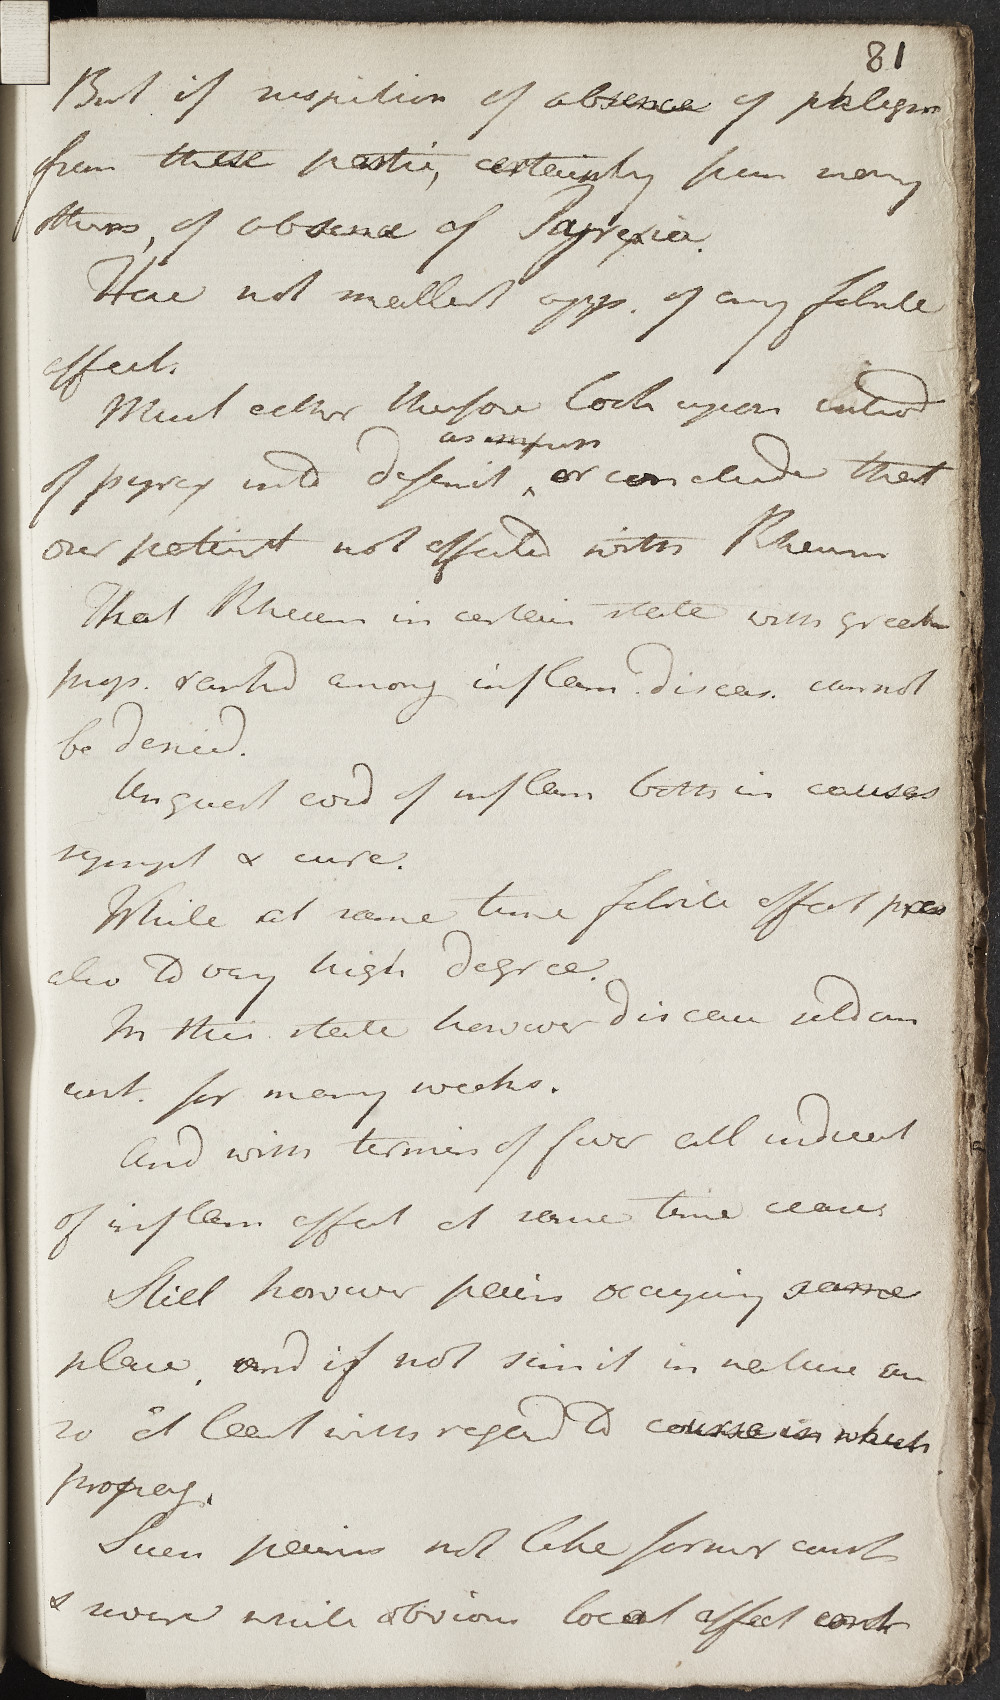 81
But if suspition of absence of phlegm
from these partic, certainly from many
others, of absence of Pyrexia.
Here not smallest app. of any febrile
affect.
Must either therfore look upon introd
of pyrex into definit
or conclude that
our patient not affected with Rheum
That Rheum in certain state with great
prop. ranked among inflam. diseas. cannot
be denied.
Unquest cord of inflam both in causes
sympt & cure.
While at same time febrile affect
also to very high degree.
In this state however disease seldom
cont. for many weeks.
And with termin of fever all
of inflam affect at same time ceases
Still however pains occupying same
place, and if not simil in nature are
so at least with regard to course in which
propag.
Such pains not like former const
& severe while obvious local affect cont